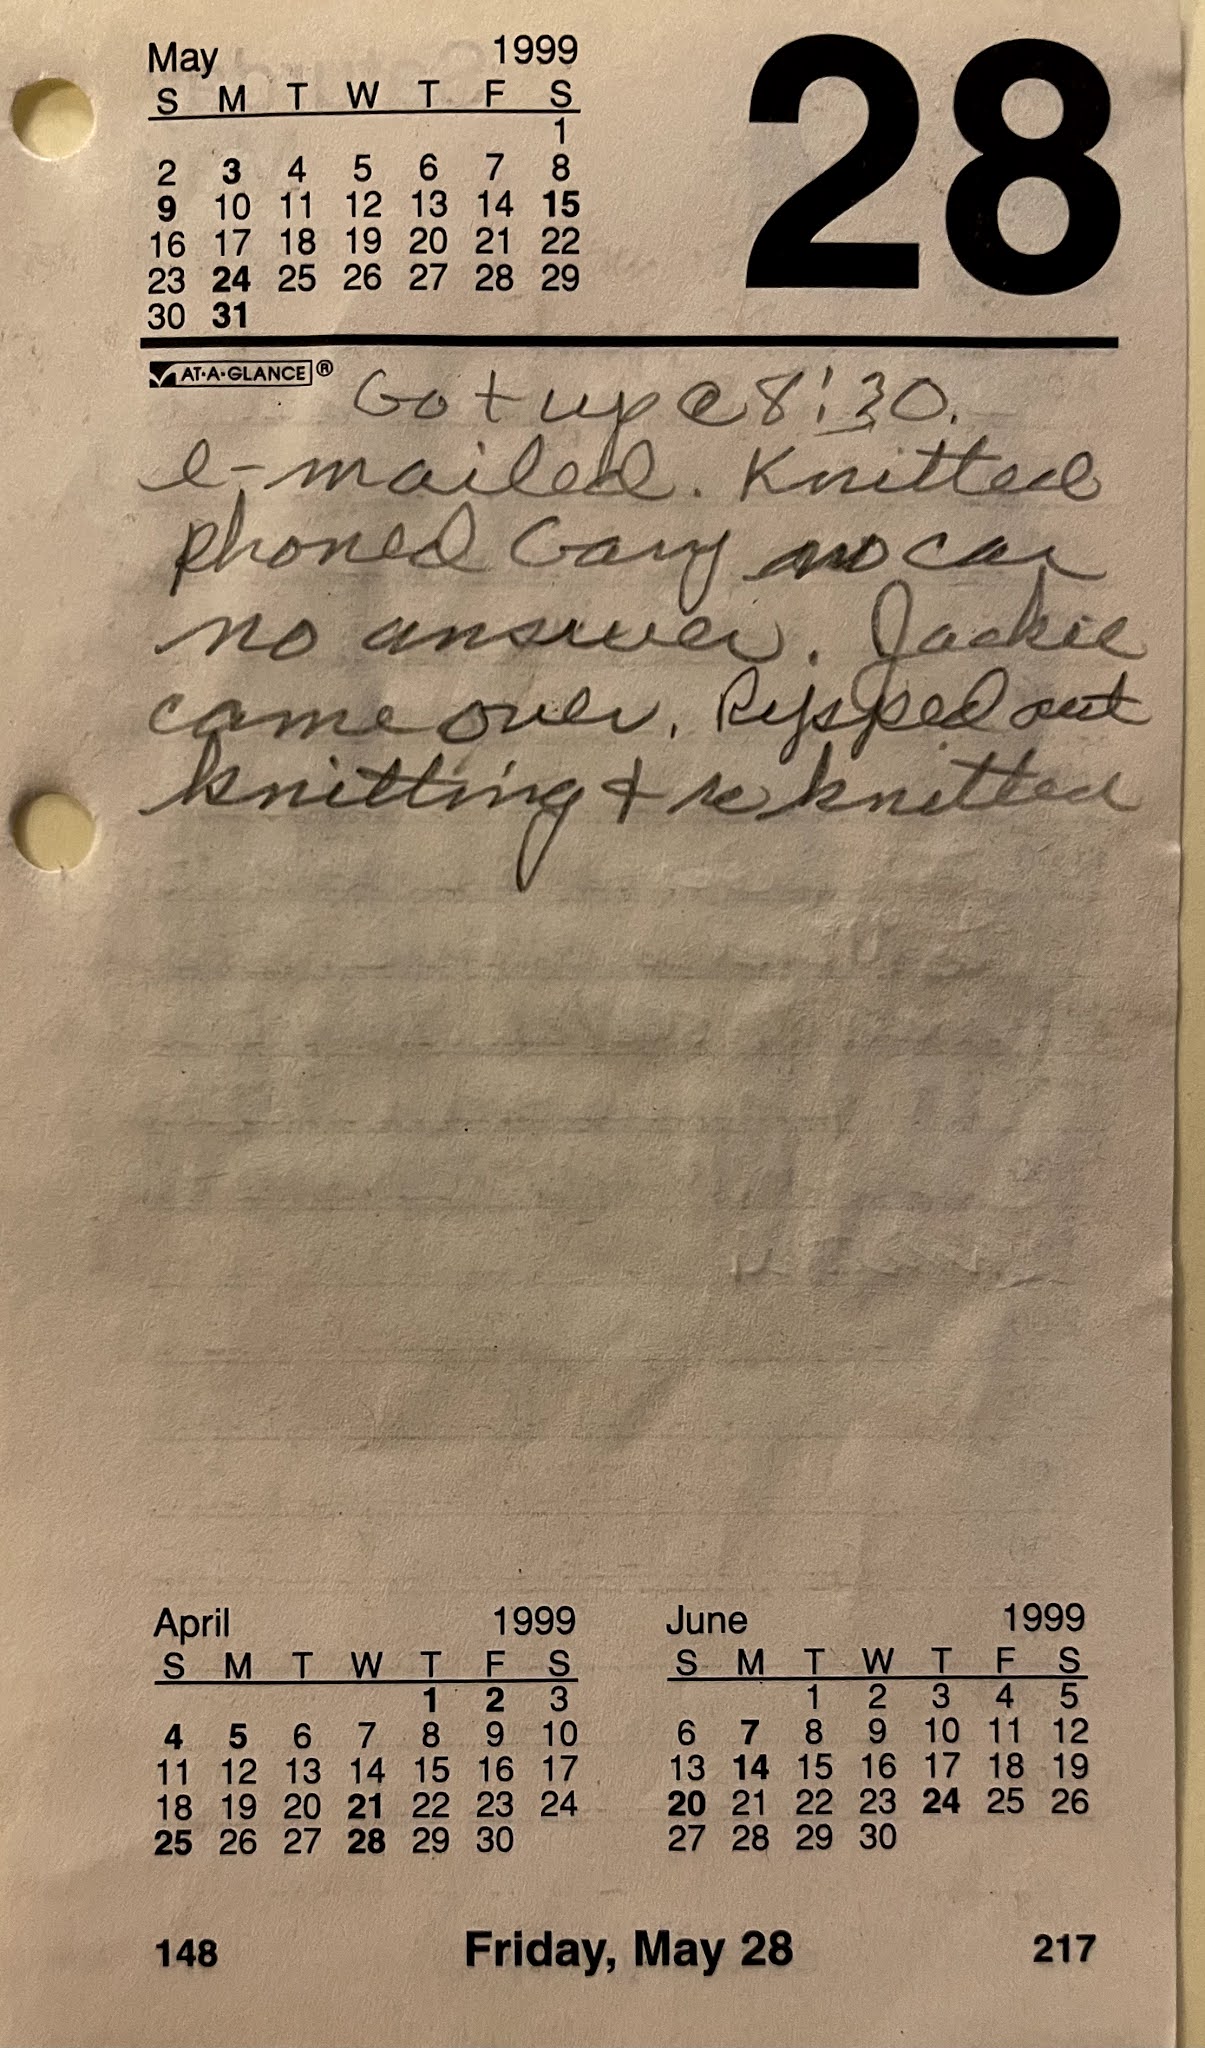 May 1999
S M T W T F S
1
2 3 4 5 6 7 8
9 10 11 12 13 14 15
16 17 18 19 20 21 22
23 24 25 26 27 28 29
30 31
28
AT-A-GLANCE®
Got up @ 8:30.
e-mailed. Knitted
phoned Gary no car
no answer. Jackie
came over. Ripped out
knitting & re knitted
April 1999
S M T W T F S
1 2 3
4 5 6 7 8 9 10
11 12 13 14 15 16 17
18 19 20 21 22 23 24
25 26 27 28 29 30
June 1999
S M T W T F S
1 2 3 4 5
6 7 8 9 10 11 12
13 14 15 16 17 18 19
20 21 22 23 24 25 26
27 28 29 30
148 Friday, May 28 217